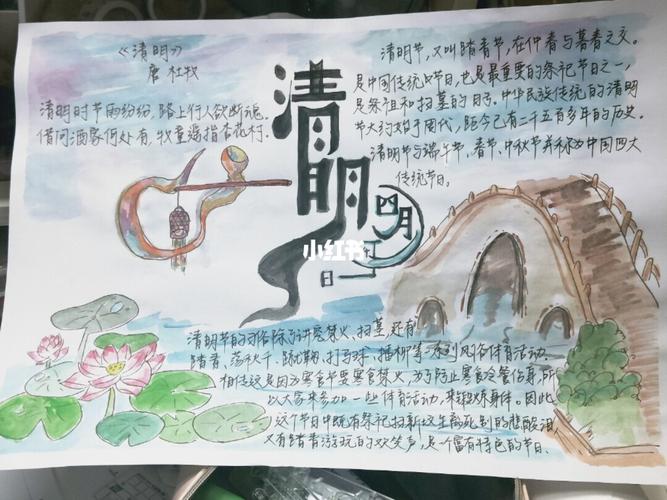 《清明》
唐 杜牧
清明时节雨纷纷，路上行人欲断魂。
借问酒家何处有，牧童遥指杏花村。
清明
四月
日
小红书
清明节，又叫踏青节，在仲春与暮春之交。
是中国传统节日，也是最重要的祭祀节日之一，
是祭祖和扫墓的日子。中华民族传统的清明
节大约始于周代，距今已有二千五百多年的历史。
清明节与端午节、春节、中秋节并称为中国四大
传统节日。
清明节的习俗除了讲究禁火、扫墓，还有
踏青、荡秋千、蹴鞠、打马球、插柳等一系列风俗体育活动。
相传这是因为寒食节要寒食禁火，为了防止寒食冷餐伤身，所
以大家来参加一些体育活动，来锻炼身体。因此
这个节日中既有祭祀扫新坟生离死别的悲酸泪
又有踏青游玩的欢笑声，是一个富有特色的节日。